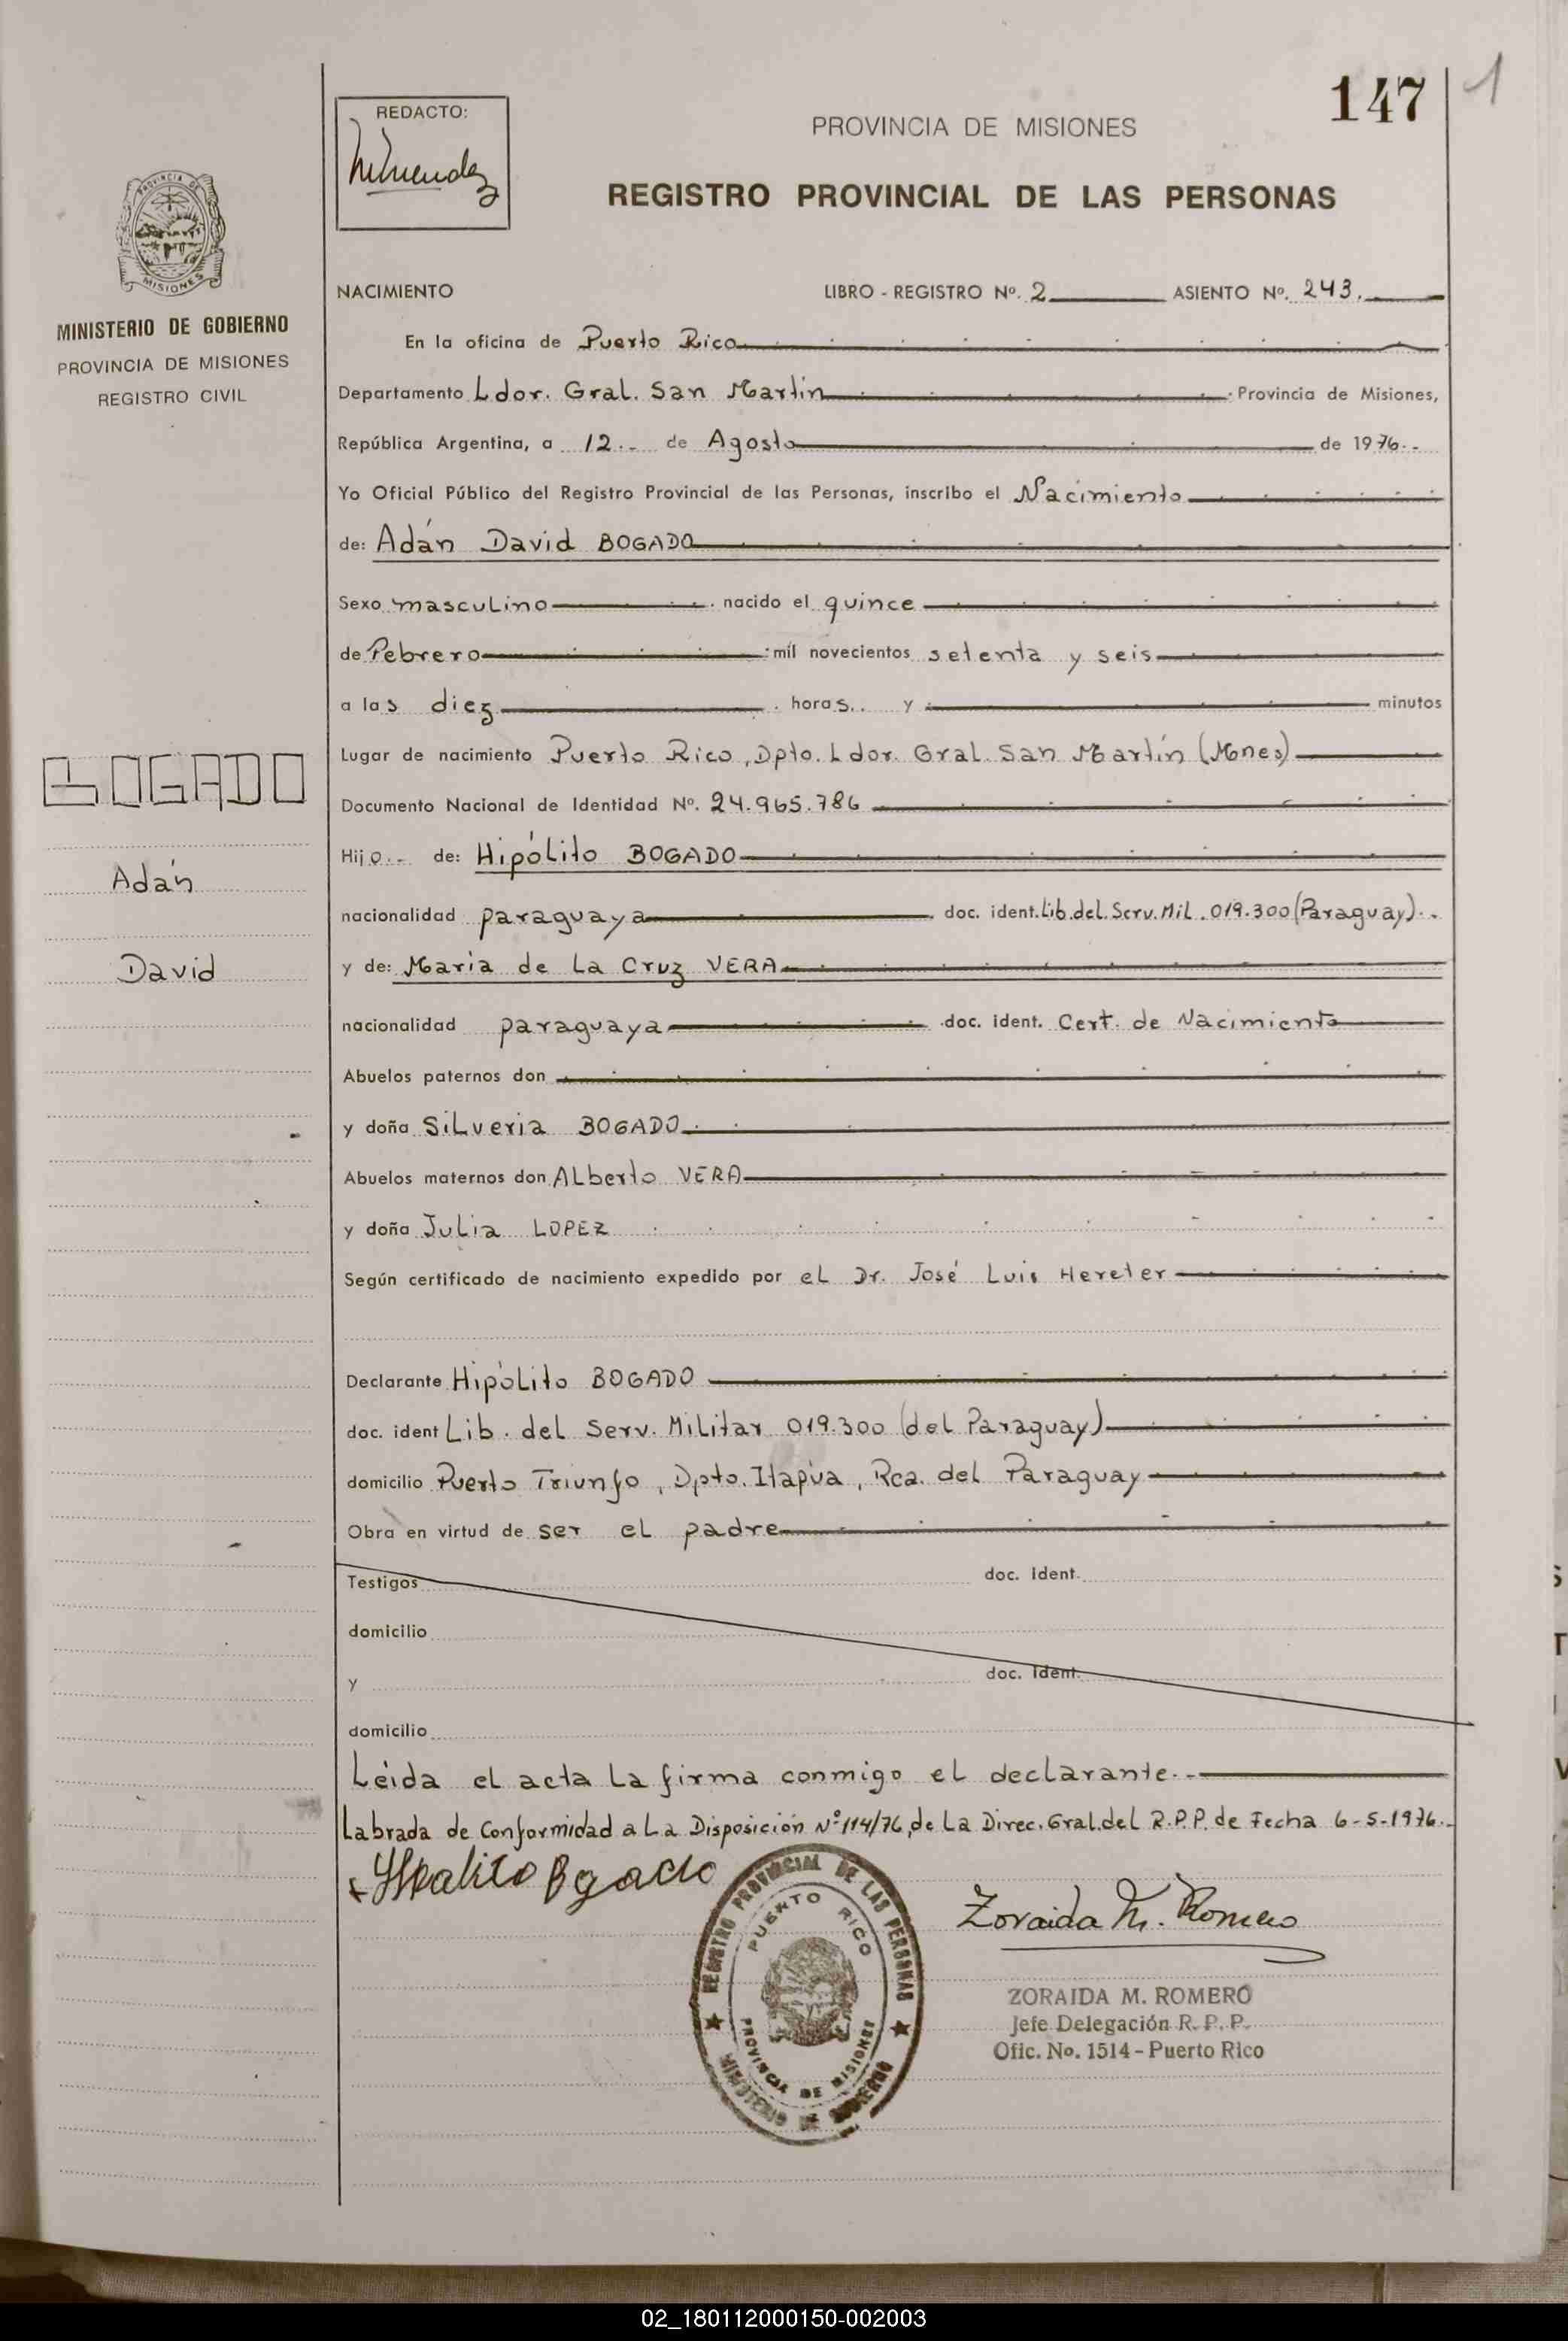 147
1
REDACTO:
PROVINCIA DE MISIONES
REGISTRO PROVINCIAL DE LAS PERSONAS
PROVINCIA DE
MISIONES
MINISTERIO DE GOBIERNO
PROVINCIA DE MISIONES
REGISTRO CIVIL
BOGADO
Adán
David
NACIMIENTO LIBRO - REGISTRO Nº. 2 ASIENTO Nº. 243.
En la oficina de Puerto Rico
Departamento Ldor. Gral. San Martín Provincia de Misiones,
República Argentina, a 12.- de Agosto de 1976.-
Yo Oficial Público del Registro Provincial de las Personas, inscribo el Nacimiento
de: Adán David BOGADO
Sexo masculino nacido el quince
de Febrero mil novecientos setenta y seis
a las diez horas. y minutos
Lugar de nacimiento Puerto Rico, Dpto. Ldor. Gral. San Martín (Mnes)
Documento Nacional de Identidad Nº. 24.965.786
Hijo.- de: Hipólito BOGADO
nacionalidad paraguaya doc. ident. Lib. del. Serv. Mil. 019.300 (Paraguay).-
y de: María de La Cruz VERA
nacionalidad paraguaya doc. ident. Cert. de Nacimiento
Abuelos paternos don
y doña Silveria BOGADO
Abuelos maternos don Alberto VERA
y doña Julia LOPEZ
Según certificado de nacimiento expedido por el Dr. José Luis Hereter
Declarante Hipólito BOGADO
doc. ident Lib. del Serv. Militar 019.300 (del Paraguay)
domicilio Puerto Triunfo, Dpto. Itapúa, Rca. del Paraguay
Obra en virtud de ser el padre
Testigos doc. ident.
domicilio
y doc. ident.
domicilio
Leída el acta la firma conmigo el declarante.-
Labrada de Conformidad a La Disposición Nº 114/76, de La Direc. Gral. del R.P.P. de Fecha 6-5-1976.-
Zoraida M. Romero
REGISTRO PROVINCIAL DE LAS PERSONAS
PUERTO RICO
PROVINCIA DE MISIONES
MINISTERIO DE GOBIERNO
ZORAIDA M. ROMERO
Jefe Delegación R. P. P.
Ofic. No. 1514 - Puerto Rico
02_180112000150-002003